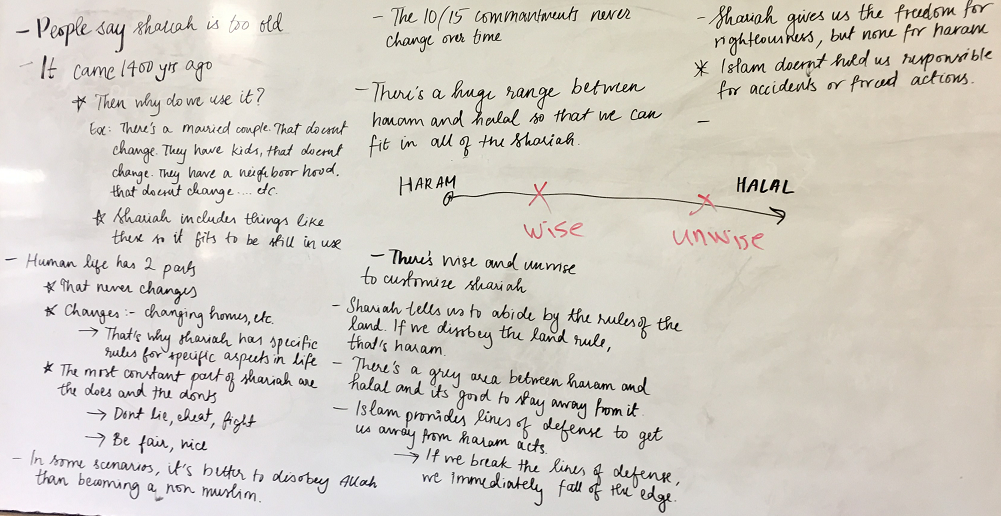 - People say shariah is too old
- It came 1400 yrs ago
* Then why do we use it?
Ex: There's a married couple. That doesnt
change. They have kids, that doesnt
change. They have a neighboor hood.
that doesnt change.... etc.
* Shariah includes things like
these so it fits to be still in use
- Human life has 2 parts
* That never changes
* Changes :- changing homes, etc.
→ That's why shariah has specific
rules for specific aspects in life
* The most constant part of shariah are
the does and the donts
→ Dont lie, cheat, fight
→ Be fair, nice
- In some scenarios, it's better to disobey Allah
than becoming a non muslim.
- The 10/15 commantments never
change over time
- There's a huge range between
haram and halal so that we can
fit in all of the shariah.
HARAM
HALAL
wise
unwise
- There's wise and unwise
to customize shariah
- Shariah tells us to abide by the rules of the
land. If we disobey the land rule,
that's haram.
- There's a grey area between haram and
halal and its good to stay away from it.
- Islam provides lines of defense to get
us away from haram acts.
→ If we break the lines of defense,
we immediately fall of the edge.
- Shariah gives us the freedom for
righteousness, but none for haram
* Islam doesnt hold us responsible
for accidents or forced actions.
-